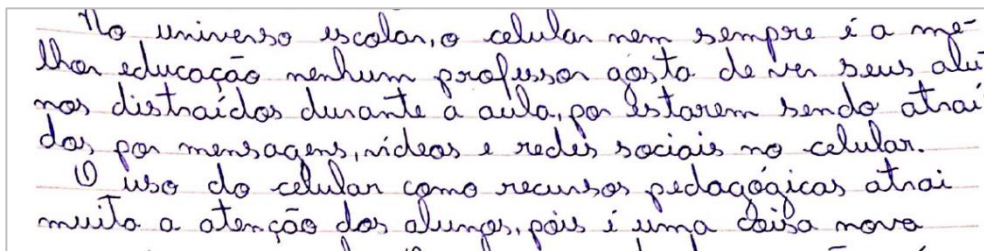 No universo escolar, o celular nem sempre é a me-
lhor educação nenhum professor gosta de ver seus alu-
nos distraídos durante a aula, por estarem sendo atraí
dos por mensagens, vídeos e redes sociais no celular.
O uso do celular como recursos pedagógicas atrai
muito a atenção dos alunos, pois é uma coisa nova